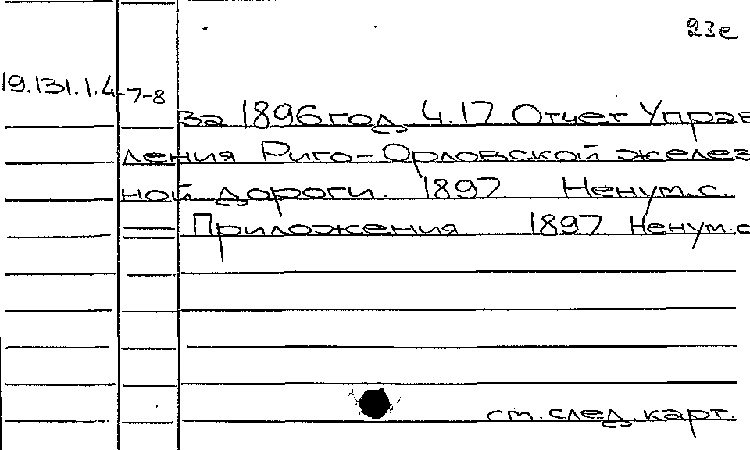 23е
19.131.1.4-7-8
За 1896 год Ч.17 Отчет Управ
ления Риго-Орловской желез
ной дороги. 1897 Ненум.с.
Приложения 1897 Ненум.с
см. след. карт.